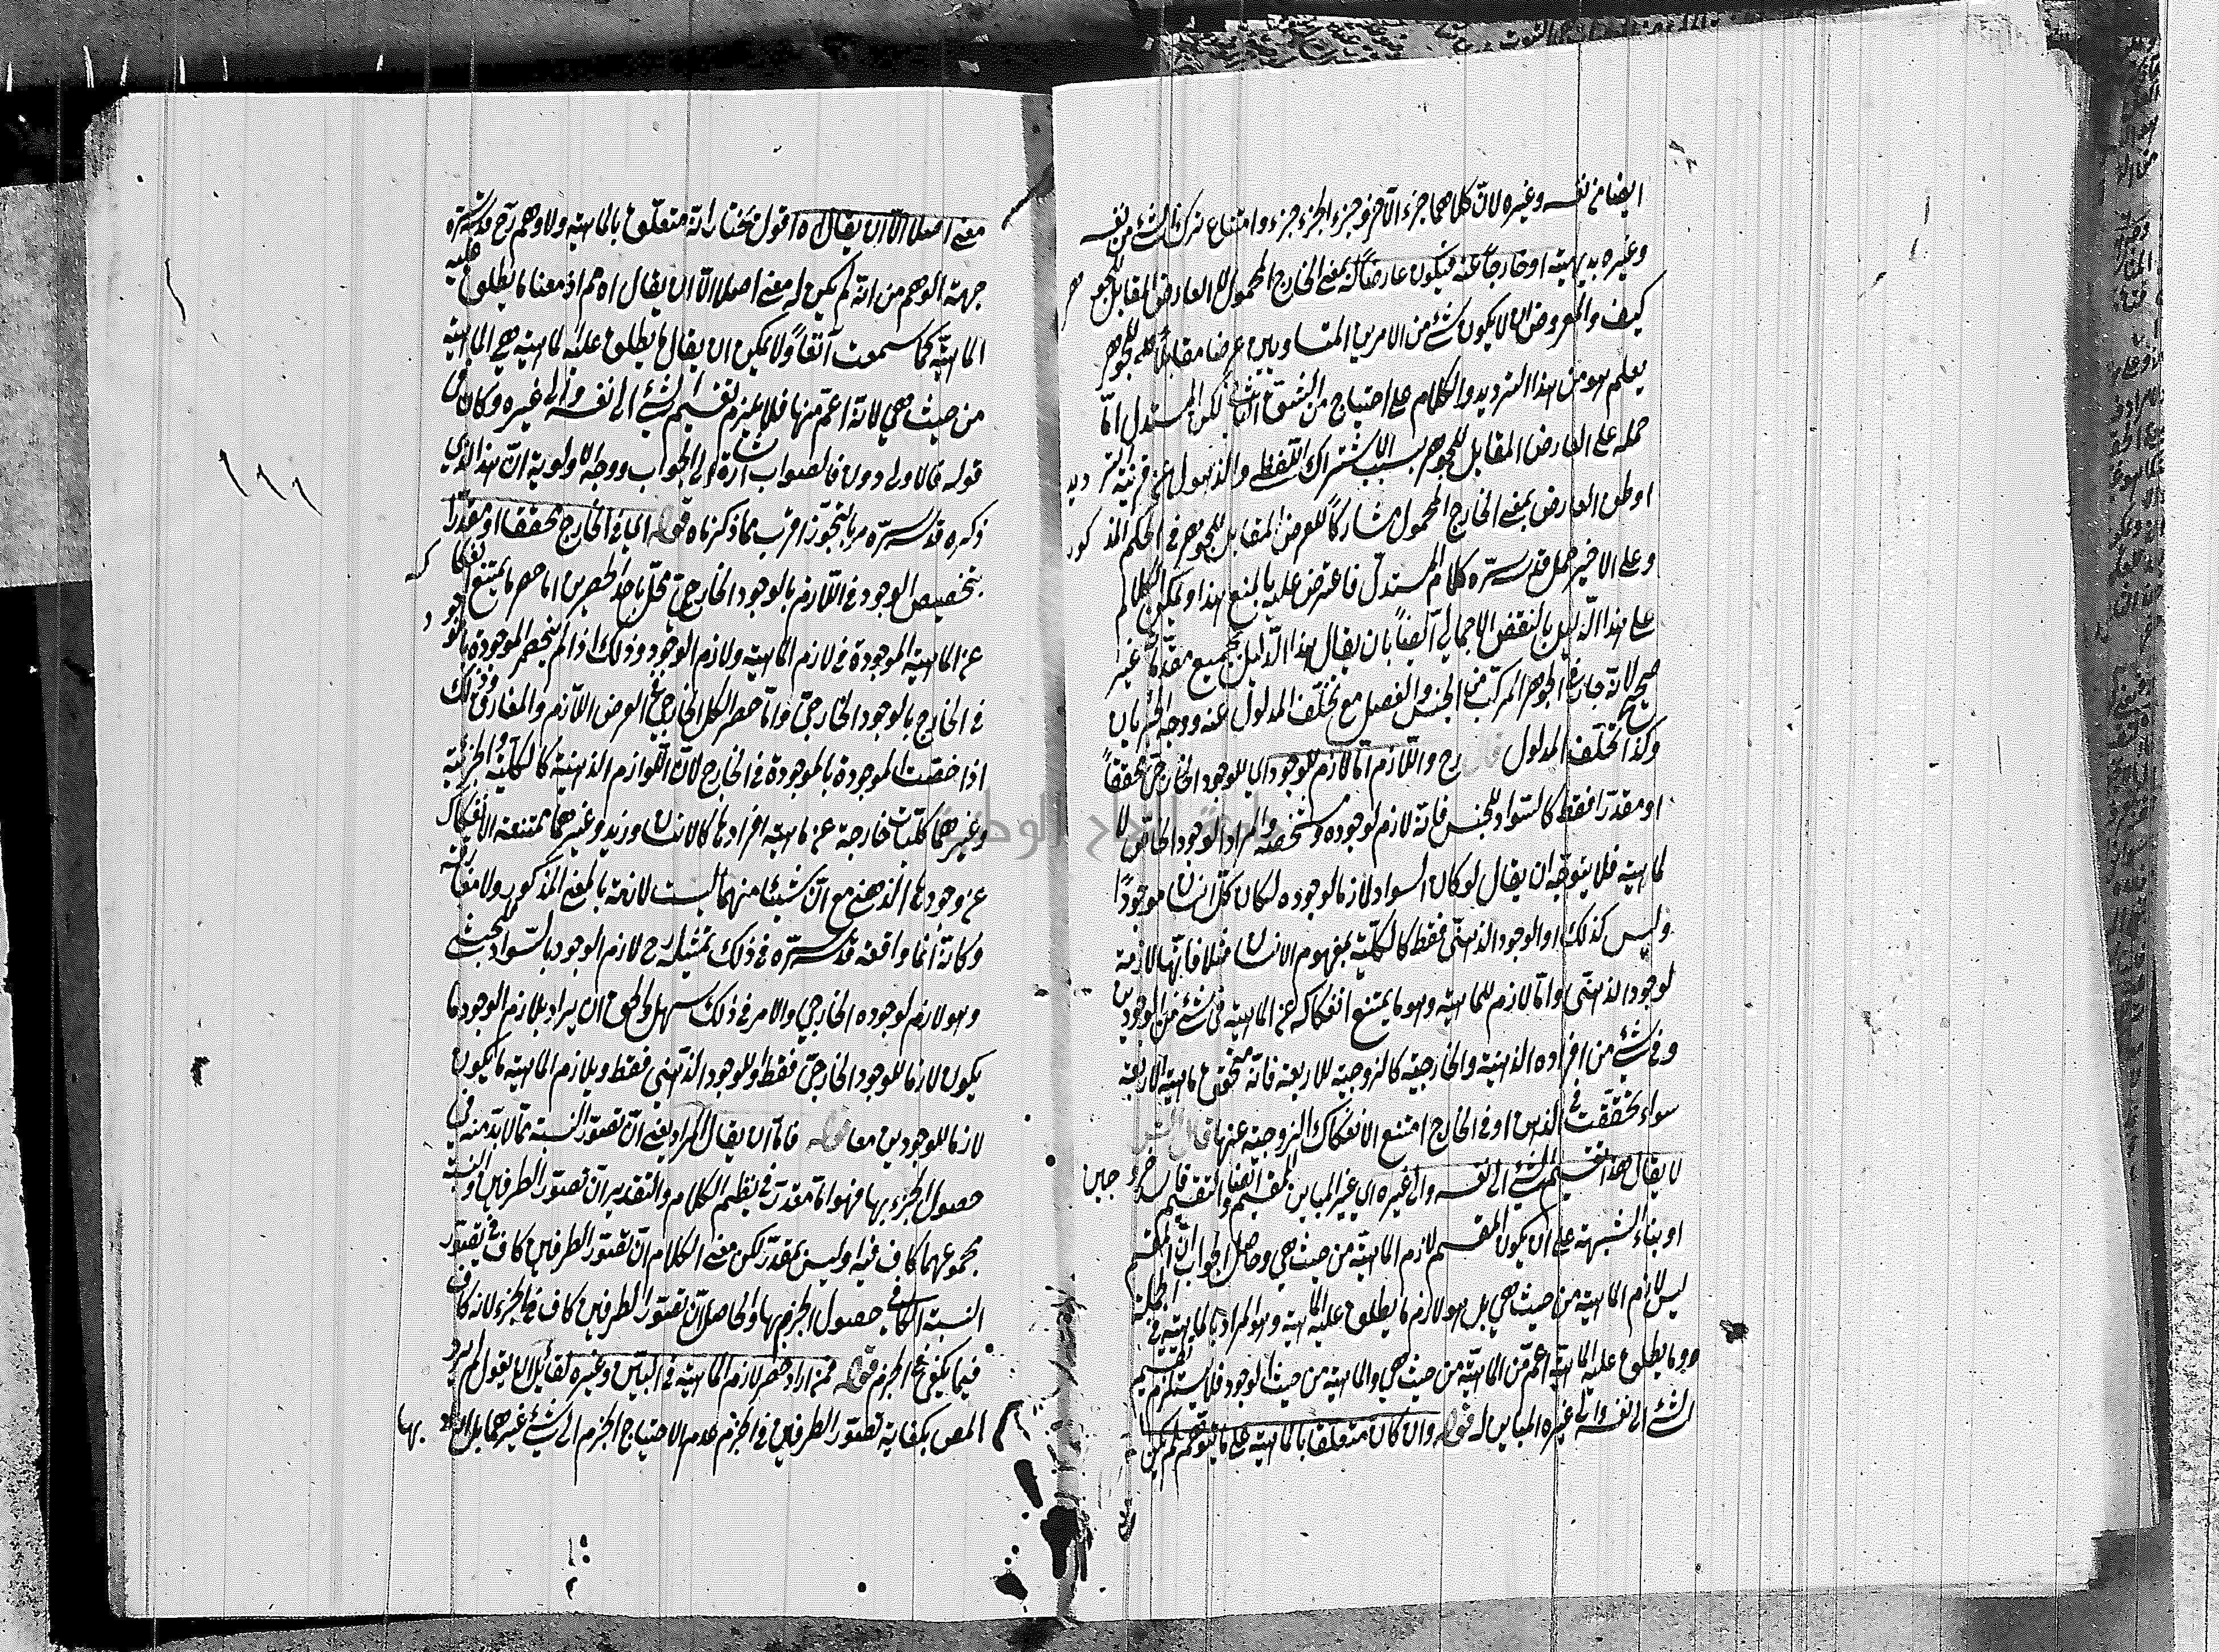 ايضا من نفسه وغيره لان كلاهما جزء الآخر وجزء الجزء جزء وامتناع تركب الشئ من نفسه
وغيره بديهية او خارجا عنه فيكون عارضا له بمعنى الخارج المحمول لا العارض المقابل للجوهر
كيف والمعروض ان لا يكون شئ من الامرين المتساويين عرضا مقابلا للجوهر
يعلم هو من هذا الترديد والكلام على احتياج من الشق الثاني لكن المستدل اما
حمله على العارض المقابل للجوهر بسبب الاشتراك اللفظي والذهول عن قرينة الترديد
او ظن العارض بمعنى الخارج المحمول مشاركا للعرض المقابل للجوهر في الحكم المذكور
وعلى الاخير حمل قدس سره كلام المستدل فاعترض عليه بالمنع هذا ويمكن الكلام
على هذا الدليل بالنقض الاجمالي ايضا بان يقال هذا الدليل بجميع مقدماته غير
صحيح لانه جار في الجوهر المركب من الجنس والفصل مع تخلف المدلول عنه ووجه الجريان
وكذا تخلف المدلول قال رح واللازم اما لازم للوجود اي للوجود الخارجي محققا
او مقدرا فقط كالسواد للحبش فانه لازم لوجوده وتشخصه والمراد الوجود الخاص لا
لماهيته فلا يتوجه ان يقال لو كان السواد لازما لوجوده لكان كل انسان موجودا
وليس كذلك او الوجود الذهني فقط كالكلية لمفهوم الانسان مثلا فانها لازمة
لوجود الذهني واما لازم للماهية وهو ما يمتنع انفكاكه عن الماهية في شئ من الوجودين
وفي شئ من افراده الذهنية والخارجية كالزوجية للاربعة فانه متى تحقق ماهية الاربعة
سواء تحققت في الذهن او في الخارج امتنع الانفكاك الزوجية عنها قال الش
لا يقال هذا تقسيم الشئ الى نفسه والى غيره اي غير المباين للمقسم ايضا والتقسيم فاسد
او بناء الشبهة على ان يكون المقسم لازم الماهية من حيث هي وحاصل الجواب ان المقسم
ليس لازم الماهية من حيث هي بل هو لازم ما يطلق عليه الماهية وهو المراد بالماهية في الجملة
وما يطلق عليه الماهية اعم من الماهية من حيث هي والماهية من حيث الوجود فلا يستلزم تقسيم
الشئ الى نفسه والى غيره المباين له قوله وان كان متعلقا بالماهية على ما يتوهم لم يكن
معنى اصلا الا ان يقال اه اقول نختار انه متعلق بالماهية ولا وهم رح قدس سره
جهة الوهم من انه لم يكن له معنى اصلا الا ان يقال اه هم اذ معنا ما يطلق عليه
الماهية كما سمعت آنفا ولا يمكن ان يقال ما يطلق عليه الماهية هي الماهية
من حيث هي لانه اعم منها فلا يلزم تقسيم الشئ الى نفسه والى غيره وكان في
قوله فالاولى دون فالصواب اشارة الى الجواب ووجه الاولوية ان هذا الذي
ذكره قدس سره مر بالتجوز اقرب مما ذكرناه قوله اما في الخارج محققا او مقدرا
بتخصيص الوجود في اللازم بالوجود الخارجي مخل باحد الحصرين اما حصر ما يمتنع انفكاكه
عن الماهية الموجودة في لازم الماهية ولازم الوجود وذلك اذا لم ينحصر الموجودة بالوجود
في الخارج بالوجود الخارجي واما حصر الكل الخارجي في العرض اللازم والمفارق وذلك
اذا خصت الموجودة بالموجودة في الخارج لان اللوازم الذهنية كالكلية والجزئية
وغيرهما كليات خارجة عن ماهية افرادها كالانسان وزيد وغيرهما ممتنعة الانفكاك
عن وجودها الذهني مع ان شيئا منهما ليست لازمة بالمعنى المذكور ولا مفارقة
وكانه انما واقعه قدس سره في ذلك تمثيله رح لازم الوجود بالسواد للحبشي
وهو لازم لوجوده الخارجي والامر في ذلك سهل والحق ان يراد بلازم الوجود ما
يكون لازما للوجود الخارجي فقط او للوجود الذهني فقط وبلازم الماهية ما يكون
لازما للوجودين معا قوله فاما ان يقال المراد يعني ان تصور النسبة مما لابد منه في
حصول الجزم بها فهو اما مقدر في نظم الكلام والتقدير ان تصور الطرفين والنسبة
مجموعهما كاف فيه او ليس بمقدر لكن معنى الكلام ان تصور الطرفين كاف في تصور
النسبة الكافي حصول الجزم بها والحاصل ان تصور الطرفين كاف في الجزم لانه كاف
فيما يكفي في الجزم قوله فمن اراد حصر لازم الماهية في البين وغيره لقائل ان يقول لم يرد
المص بكفاية تصور الطرفين في الجزم عدم الاحتياج الجزم الى شئ غيرهما بل اراد بها
١١١